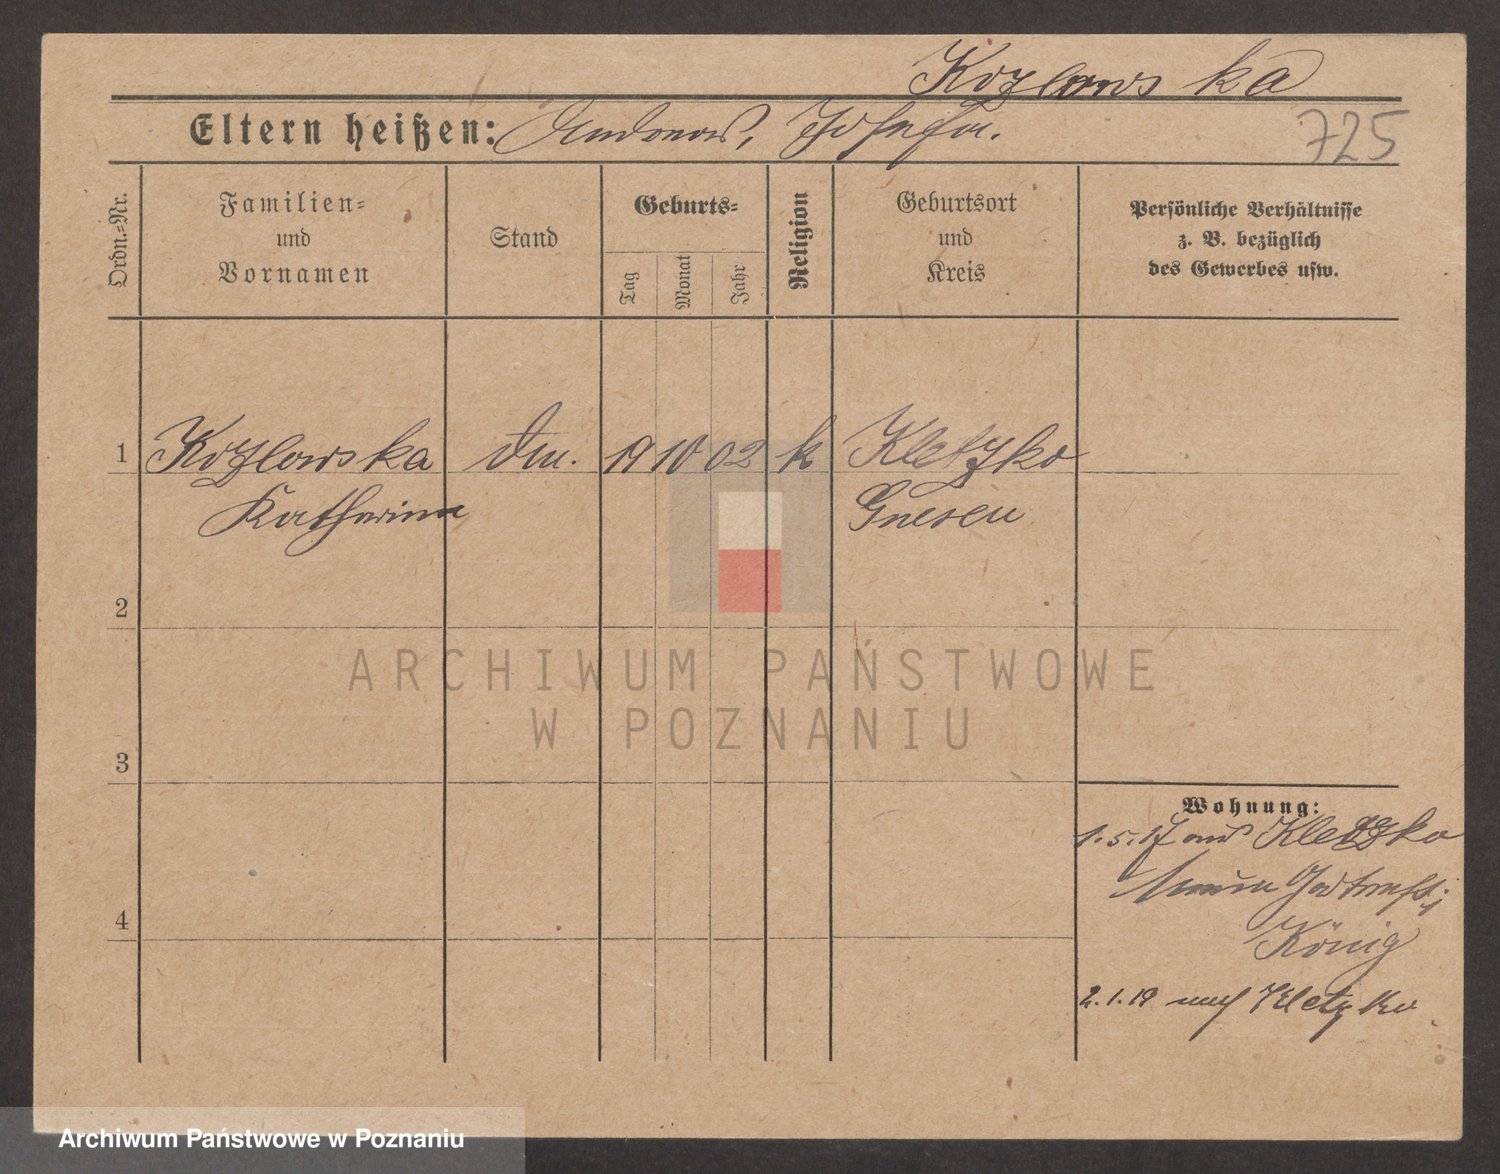 Kozlowska
Eltern heißen: Andreas, Josefa.
725
Ordn.-Nr.
Familien-
und
Vornamen
Stand
Geburts-
Tag
Monat
Jahr
Religion
Geburtsort
und
Kreis
Persönliche Verhältnisse
z. B. bezüglich
des Gewerbes usw.
1 Kozlowska 19 10 02 k Kletzko
Katharina Gnesen
2
3
4
Wohnung:
1.5.17 aus Kletzko
König
2.1.19 nach Kletzko
ARCHIWUM PAŃSTWOWE
W POZNANIU
Archiwum Państwowe w Poznaniu